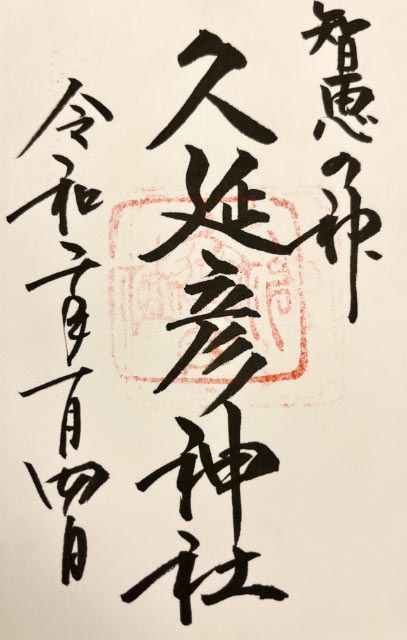 智恵の神
久延彦神社
令和二年一月四日